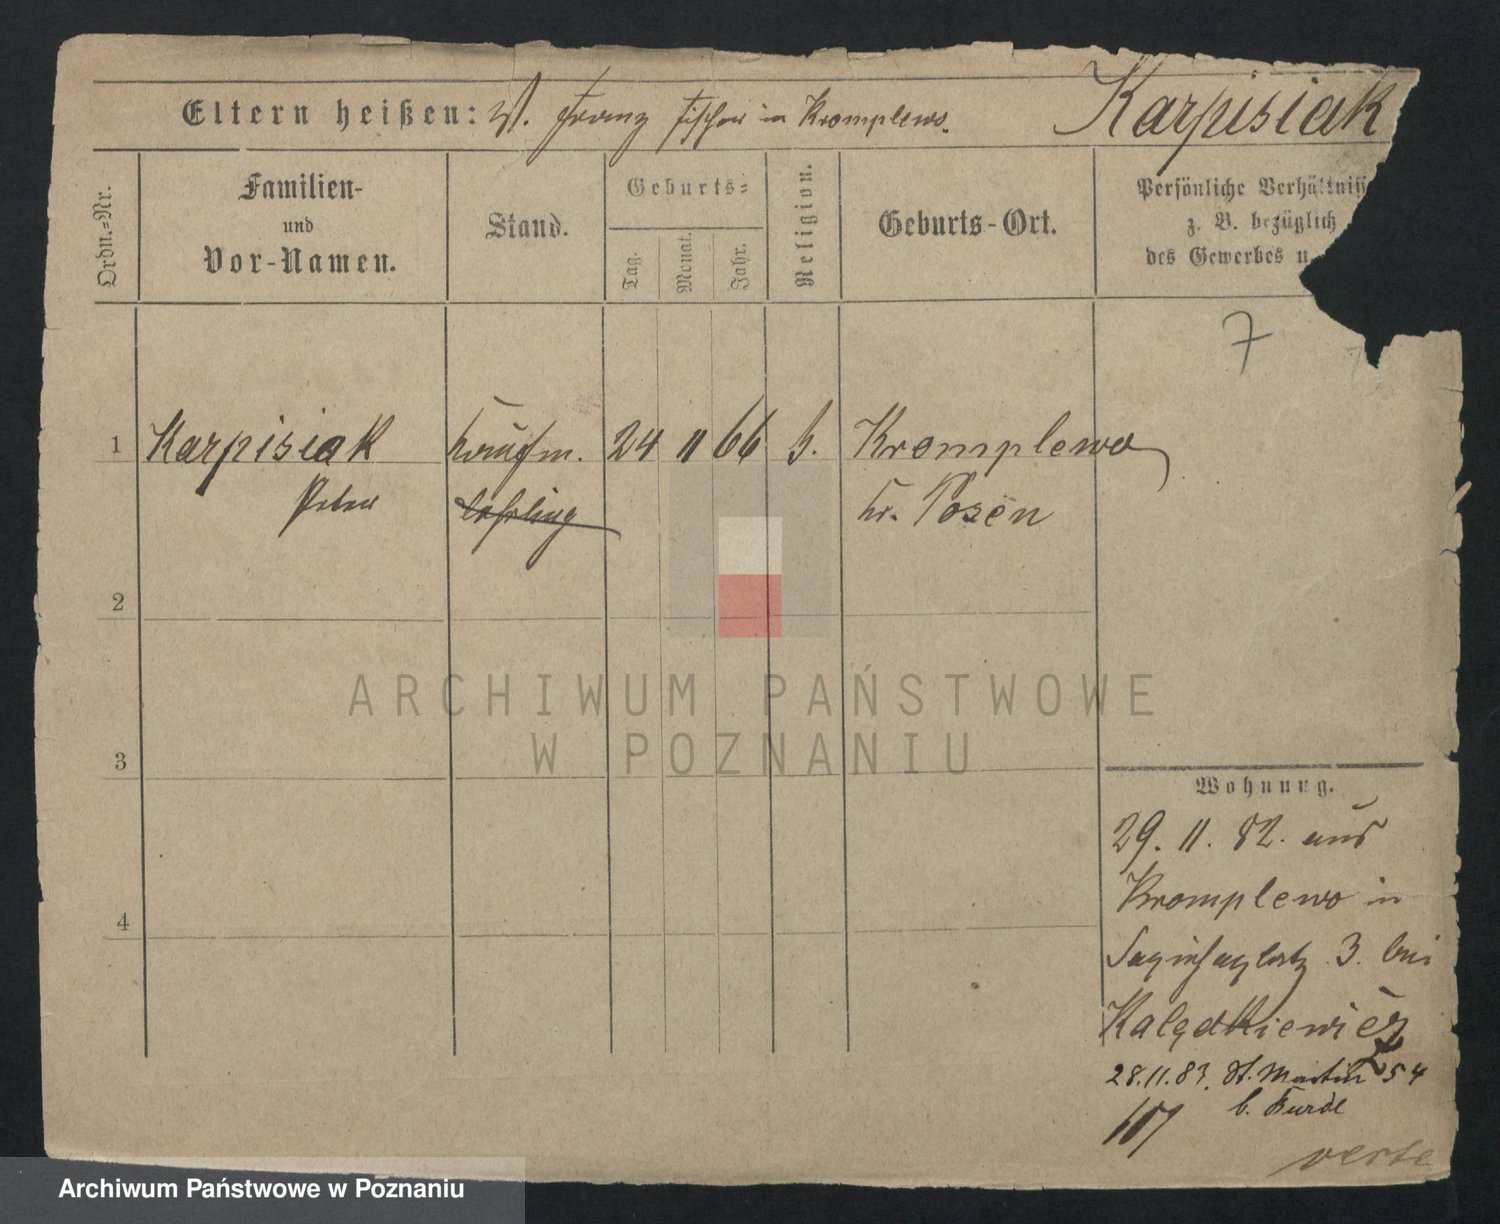 Eltern heißen: V. Franz Fischer in Kromplewo.
Karpisiak
Ordn.-Nr.
Familien-
und
Vor-Namen.
Stand.
Geburts-
Tag.
Monat.
Jahr.
Religion.
Geburts-Ort.
Persönliche Verhältniss
z. B. bezüglich
des Gewerbes u.
7
1 Karpisiak Kaufm. 24 11 66 k. Kromplewo
Peter lehrling Kr. Posen
2
3
4
Wohnung.
29. 11. 82. aus
Kromplewo in
Sapiehaplatz 3. bei
28.11.83. St. Martin 54
verte
ARCHIWUM PAŃSTWOWE
W POZNANIU
Archiwum Państwowe w Poznaniu